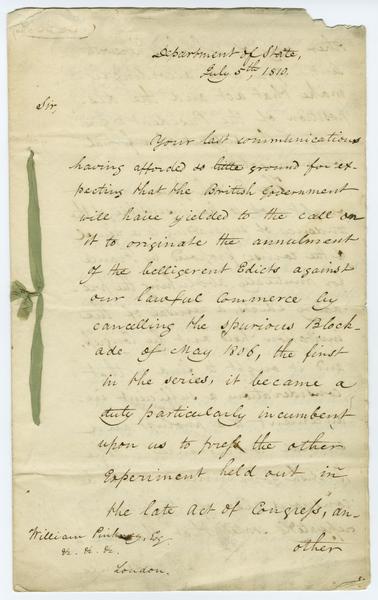 Department of State,
July 5th 1810.
Sir,
Your last communications
having afforded so little ground for ex-
pecting that the British Government
will have yielded to the call on
it to originate the annulment
of the belligerent Edicts against
our lawful Commerce by
cancelling the spurious Block-
ade of May 1806, the first
in the series, it became a
duty particularly incumbent
upon us to press the other
Experiment held out in
the late Act of Congress, an-
other
William Pinkney, Esq
&c. &c. &c.
London.